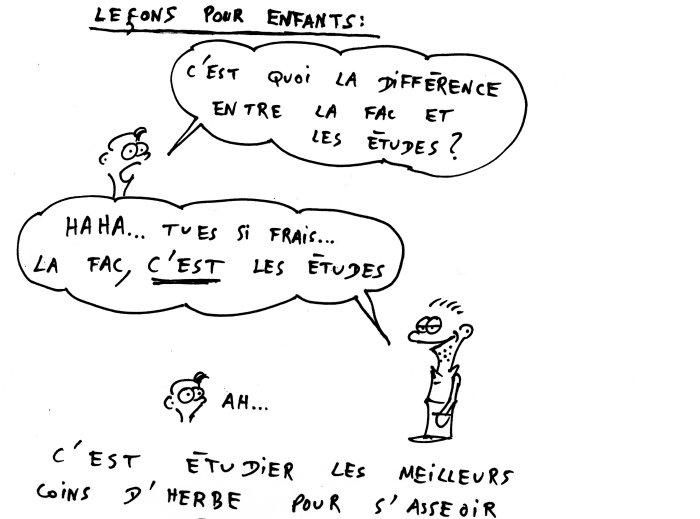 LEÇONS POUR ENFANTS:
C'EST QUOI LA DIFFÉRENCE
ENTRE LA FAC ET
LES ÉTUDES?
HAHA... TU ES SI FRAIS...
LA FAC, C'EST LES ÉTUDES
AH...
C'EST ÉTUDIER LES MEILLEURS
COINS D'HERBE POUR S'ASSEOIR